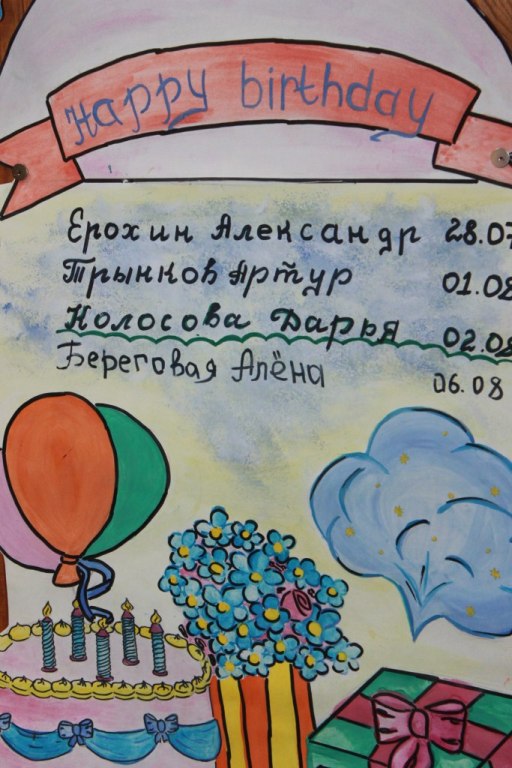 Happy birthday
Ерохин Александр 28.07
Трынков Артур 01.08
Колосова Дарья 02.08
Береговая Алёна 06.08